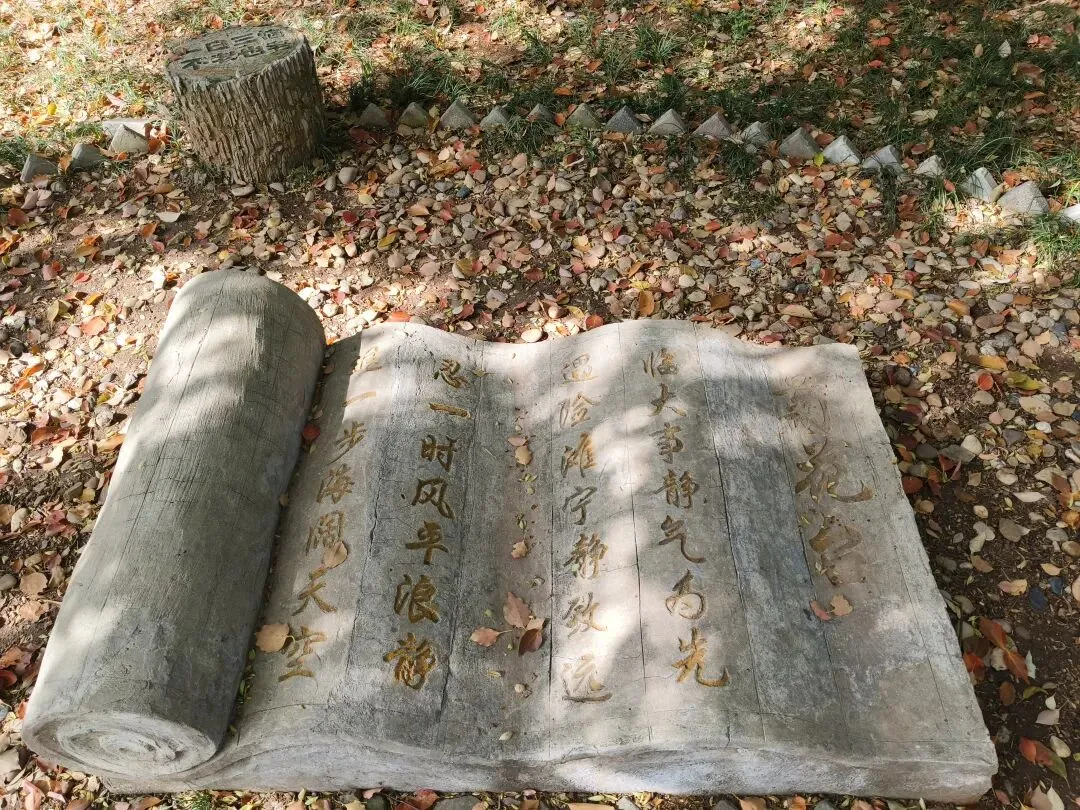 一日三
花
临大事静气为先
遇险滩宁静致远
忍一时风平浪静
退一步海阔天空